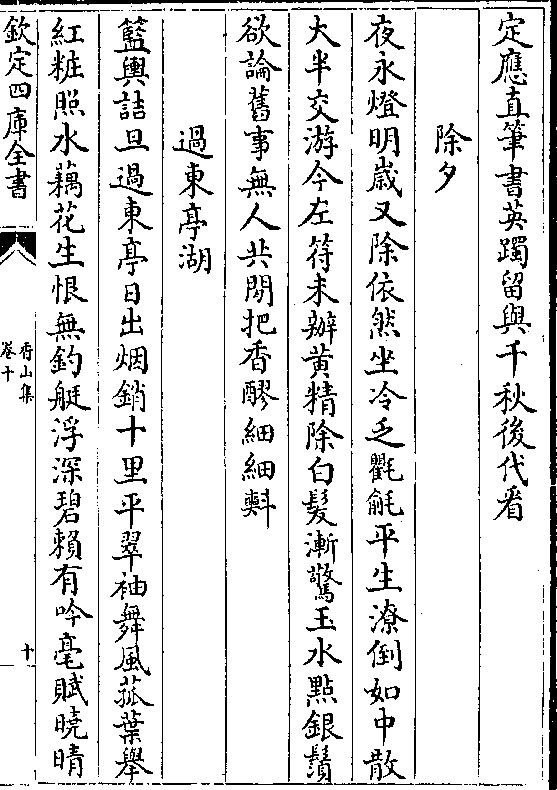 定應直筆書英躅留與千秋後代看
除夕
夜永燈明嵗又除依然坐冷乏氍毹平生潦倒如中散
大半交游今左符未辦黄精除白髮漸驚玉水點銀鬚
欲論舊事無人共閒把香醪細細㪺
過東亭湖
籃輿詰旦過東亭日出烟銷十里平翠袖舞風菰葉舉
紅粧照水藕花生恨無釣艇浮深碧賴有吟毫賦曉晴
欽定四庫全書
香山集
卷十
十